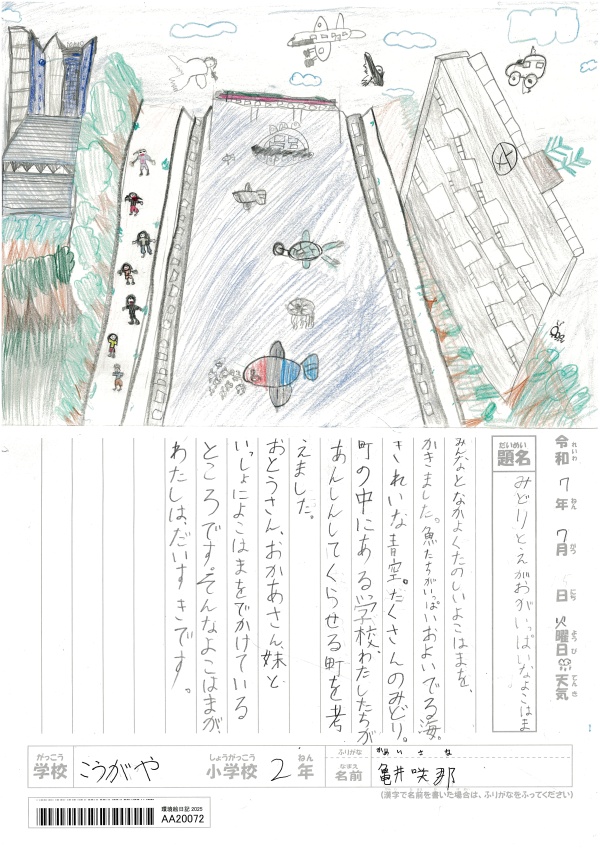 A
令和7年7月 日火曜日 天気
れいわ ねん がつ にち ようび てんき
だいめい
題名
みどりとえがおがいっぱいなよこはま
みんなとなかよくたのしいよこはまを、
かきました。魚たちがいっぱいおよいでる海。
きれいな青空。たくさんのみどり。
町の中にある学校。わたしたちが
あんしんしてくらせる町を考
えました。
おとうさん、おかあさん、妹と
いっしょによこはまをでかけている
ところです。そんなよこはまが、
わたしは、だいすきです。
がっこう
学校
こうがや
しょうがっこう
小学校
2
ねん
年
ふりがな
かめいさな
なまえ
名前
亀井咲那
(漢字で名前を書いた場合は、ふりがなをふってください)
環境絵日記 2025
AA20072